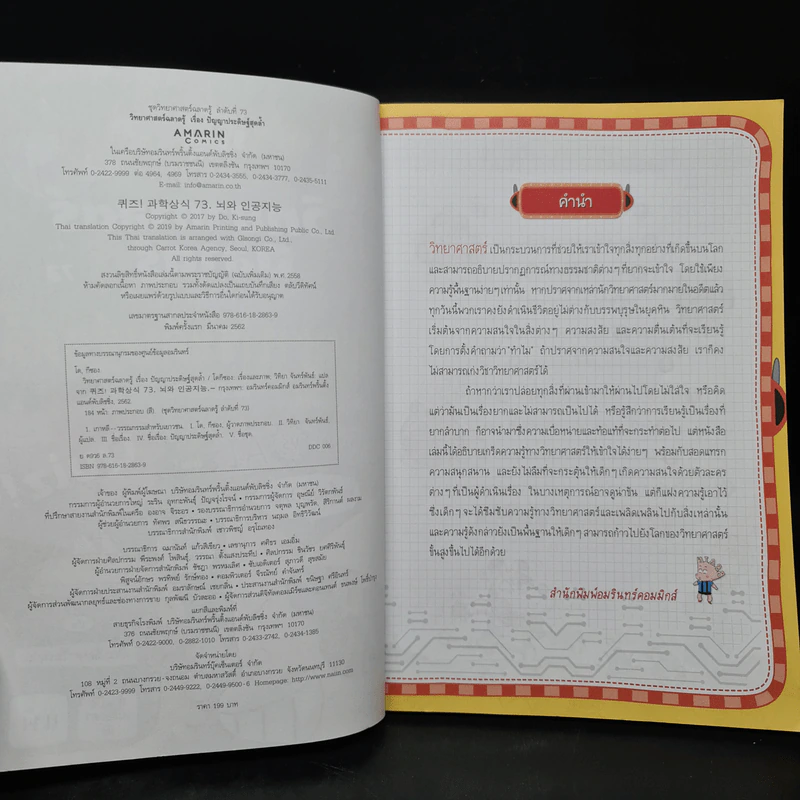 ชุดวิทยาศาสตร์ฉลาดรู้ ลำดับที่ 73
วิทยาศาสตร์ฉลาดรู้ เรื่อง ปัญญาประดิษฐ์สุดล้ำ
AMARIN
COMICS
ในเครือบริษัทอมรินทร์พริ้นติ้งแอนด์พับลิชชิ่ง จำกัด (มหาชน)
378 ถนนชัยพฤกษ์ (บรมราชชนนี) เขตตลิ่งชัน กรุงเทพฯ 10170
โทรศัพท์ 0-2422-9999 ต่อ 4964, 4969 โทรสาร 0-2434-3555, 0-2434-3777, 0-2435-5111
E-mail: info@amarin.co.th
퀴즈! 과학상식 73. 뇌와 인공지능
Copyright © 2017 by Do, Ki-sung
Thai translation Copyright © 2019 by Amarin Printing and Publishing Public Co., Ltd
This Thai translation is arranged with Glsongi Co., Ltd.,
through Carrot Korea Agency, Seoul, KOREA
All rights reserved
สงวนลิขสิทธิ์หนังสือเล่มนี้ตามพระราชบัญญัติ (ฉบับเพิ่มเติม) พ.ศ. 2558
ห้ามคัดลอกเนื้อหา ภาพประกอบ รวมทั้งดัดแปลงเป็นแถบบันทึกเสียง ตลับวีดิทัศน์
หรือเผยแพร่ด้วยรูปแบบและวิธีการอื่นใดก่อนได้รับอนุญาต
เลขมาตรฐานสากลประจำหนังสือ 978-616-18-2863-9
พิมพ์ครั้งแรก มีนาคม 2562
ข้อมูลทางบรรณานุกรมของศูนย์ข้อมูลอมรินทร์
โด, กีซอง.
วิทยาศาสตร์ฉลาดรู้ เรื่อง ปัญญาประดิษฐ์สุดล้ำ / โดกีซอง: เรื่องและภาพ; วิทิยา จันทร์พันธ์: แปล
จาก 퀴즈! 과학상식 73. 뇌와 인공지능.-- กรุงเทพฯ: อมรินทร์คอมมิกส์ อมรินทร์พริ้นติ้ง
แอนด์พับลิชชิ่ง, 2562.
184 หน้า. ภาพประกอบ (สี). (ชุดวิทยาศาสตร์ฉลาดรู้ ลำดับที่ 73)
1. เกาหลี--วรรณกรรมสำหรับเยาวชน. I. โด, กีซอง, ผู้วาดภาพประกอบ. II. วิทิยา จันทร์พันธ์,
ผู้แปล. III. ชื่อเรื่อง. IV. ชื่อเรื่อง: ปัญญาประดิษฐ์สุดล้ำ. V. ชื่อชุด.
DDC 006
ISBN 978-616-18-2863-9
เจ้าของ ผู้พิมพ์ผู้โฆษณา บริษัทอมรินทร์พริ้นติ้งแอนด์พับลิชชิ่ง จำกัด (มหาชน)
แยกสีและพิมพ์ที่
สายธุรกิจโรงพิมพ์ บริษัทอมรินทร์พริ้นติ้งแอนด์พับลิชชิ่ง จำกัด (มหาชน)
376 ถนนชัยพฤกษ์ (บรมราชชนนี) เขตตลิ่งชัน กรุงเทพฯ 10170
โทรศัพท์ 0-2422-9000, 0-2882-1010 โทรสาร 0-2433-2742, 0-2434-1385
จัดจำหน่ายโดย
บริษัทอมรินทร์บุ๊คเซ็นเตอร์ จำกัด
108 หมู่ที่ 2 ถนนบางกรวย-จงถนอม ตำบลมหาสวัสดิ์ อำเภอบางกรวย จังหวัดนนทบุรี 11130
โทรศัพท์ 0-2423-9999 โทรสาร 0-2449-9222, 0-2449-9500-6 Homepage: http://www.naiin.com
ราคา 199 บาท
คำนำ
วิทยาศาสตร์ เป็นกระบวนการที่ช่วยให้เราเข้าใจทุกสิ่งทุกอย่างที่เกิดขึ้นบนโลก
และสามารถอธิบายปรากฏการณ์ทางธรรมชาติต่างๆ ที่ยากจะเข้าใจ โดยใช้เพียง
ความรู้พื้นฐานง่ายๆ เท่านั้น หากปราศจากเหล่านักวิทยาศาสตร์มากมายในอดีตแล้ว
ทุกวันนี้พวกเราคงยังดำเนินชีวิตอยู่ไม่ต่างกับบรรพบุรุษในยุคหิน วิทยาศาสตร์
เริ่มต้นจากความสนใจในสิ่งต่างๆ ความสงสัย และความตื่นเต้นที่จะเรียนรู้
โดยการตั้งคำถามว่า "ทำไม" ถ้าปราศจากความสนใจและความสงสัย เราก็คง
ไม่สามารถเก่งวิชาวิทยาศาสตร์ได้
ถ้าหากว่าเราปล่อยทุกสิ่งที่ผ่านเข้ามาให้ผ่านไปโดยไม่ใส่ใจ หรือคิด
แต่ว่ามันเป็นเรื่องยากและไม่สามารถเป็นไปได้ หรือรู้สึกว่าการเรียนรู้เป็นเรื่องที่
ยากลำบาก ก็อาจนำมาซึ่งความเบื่อหน่ายและท้อแท้ที่จะกระทำต่อไป แต่หนังสือ
เล่มนี้ได้อธิบายเกร็ดความรู้ทางวิทยาศาสตร์ให้เข้าใจได้ง่ายๆ พร้อมกับสอดแทรก
ความสนุกสนาน และยังไม่ลืมที่จะกระตุ้นให้เด็กๆ เกิดความสนใจด้วยตัวละคร
ต่างๆ ที่เป็นผู้ดำเนินเรื่อง ในบางเหตุการณ์อาจดูน่าขัน แต่ก็แฝงความรู้เอาไว้
ซึ่งเด็กๆ จะได้ซึมซับความรู้ทางวิทยาศาสตร์และเพลิดเพลินไปกับสิ่งเหล่านั้น
และความรู้ดังกล่าวยังเป็นพื้นฐานให้เด็กๆ สามารถก้าวไปยังโลกของวิทยาศาสตร์
ขั้นสูงขึ้นไปได้อีกด้วย
สำนักพิมพ์อมรินทร์คอมมิกส์